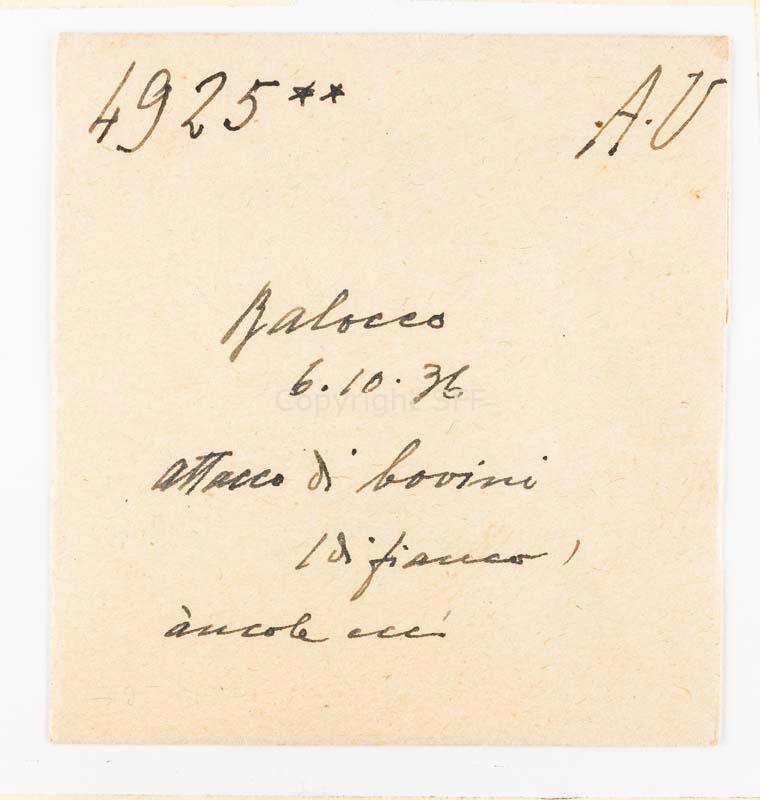 4925** A.U
Balocco
6.10.36
Copyright SFF
attacco di bovini
(di fianco)
àncole ecc.